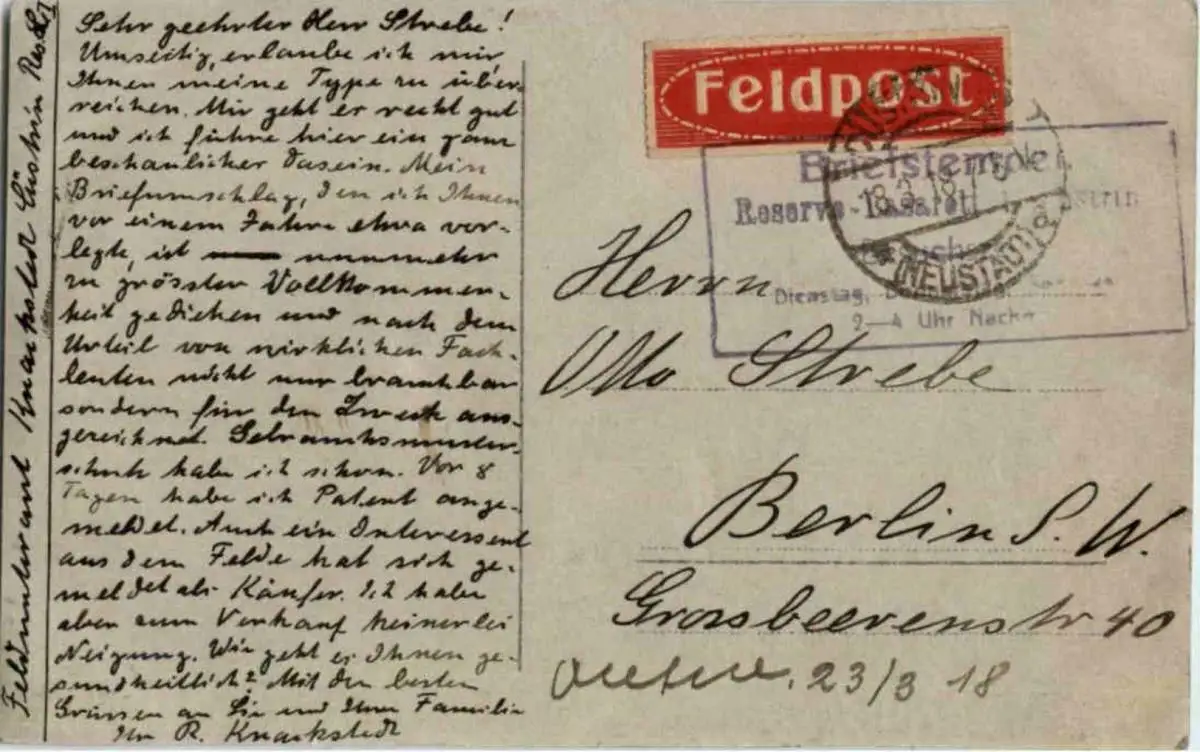 Sehr geehrter Herr Strebe!
Umseitig, erlaube ich mir
Ihnen meine Type zu über-
reichen. Mir geht es recht gut
und ich führe hier ein ganz
beschauliches Dasein. Mein
Briefumschlag, den ich Ihnen
vor einem Jahre etwa vor-
legte, ist nunmehr
zu grösster Vollkommen-
heit gediehen und nach dem
Urteil von wirklichen Fach-
leuten nicht nur brauchbar
sondern für den Zweck aus-
gezeichnet. Gebrauchsmuster-
schutz habe ich schon. Vor 8
Tagen habe ich Patent ange-
meldet. Auch ein Interessent
aus dem Felde hat sich ge-
meldet als Käufer. Ich habe
aber zum Verkauf keinerlei
Neigung. Wie geht es Ihnen ge-
sundheitlich? Mit den besten
Grüssen an Sie und Ihre Familie
Ihr R. Knackstedt
Knackstedt Cüstrin
Feldpost
Briefstempel
Reserve-Lazarett
Dienstag,
2—4 Uhr Nachm
18.3.18
(NEUSTADT)
Herrn
Otto Strebe
Berlin S. W.
Grossbeerenstr 40
23/3 18